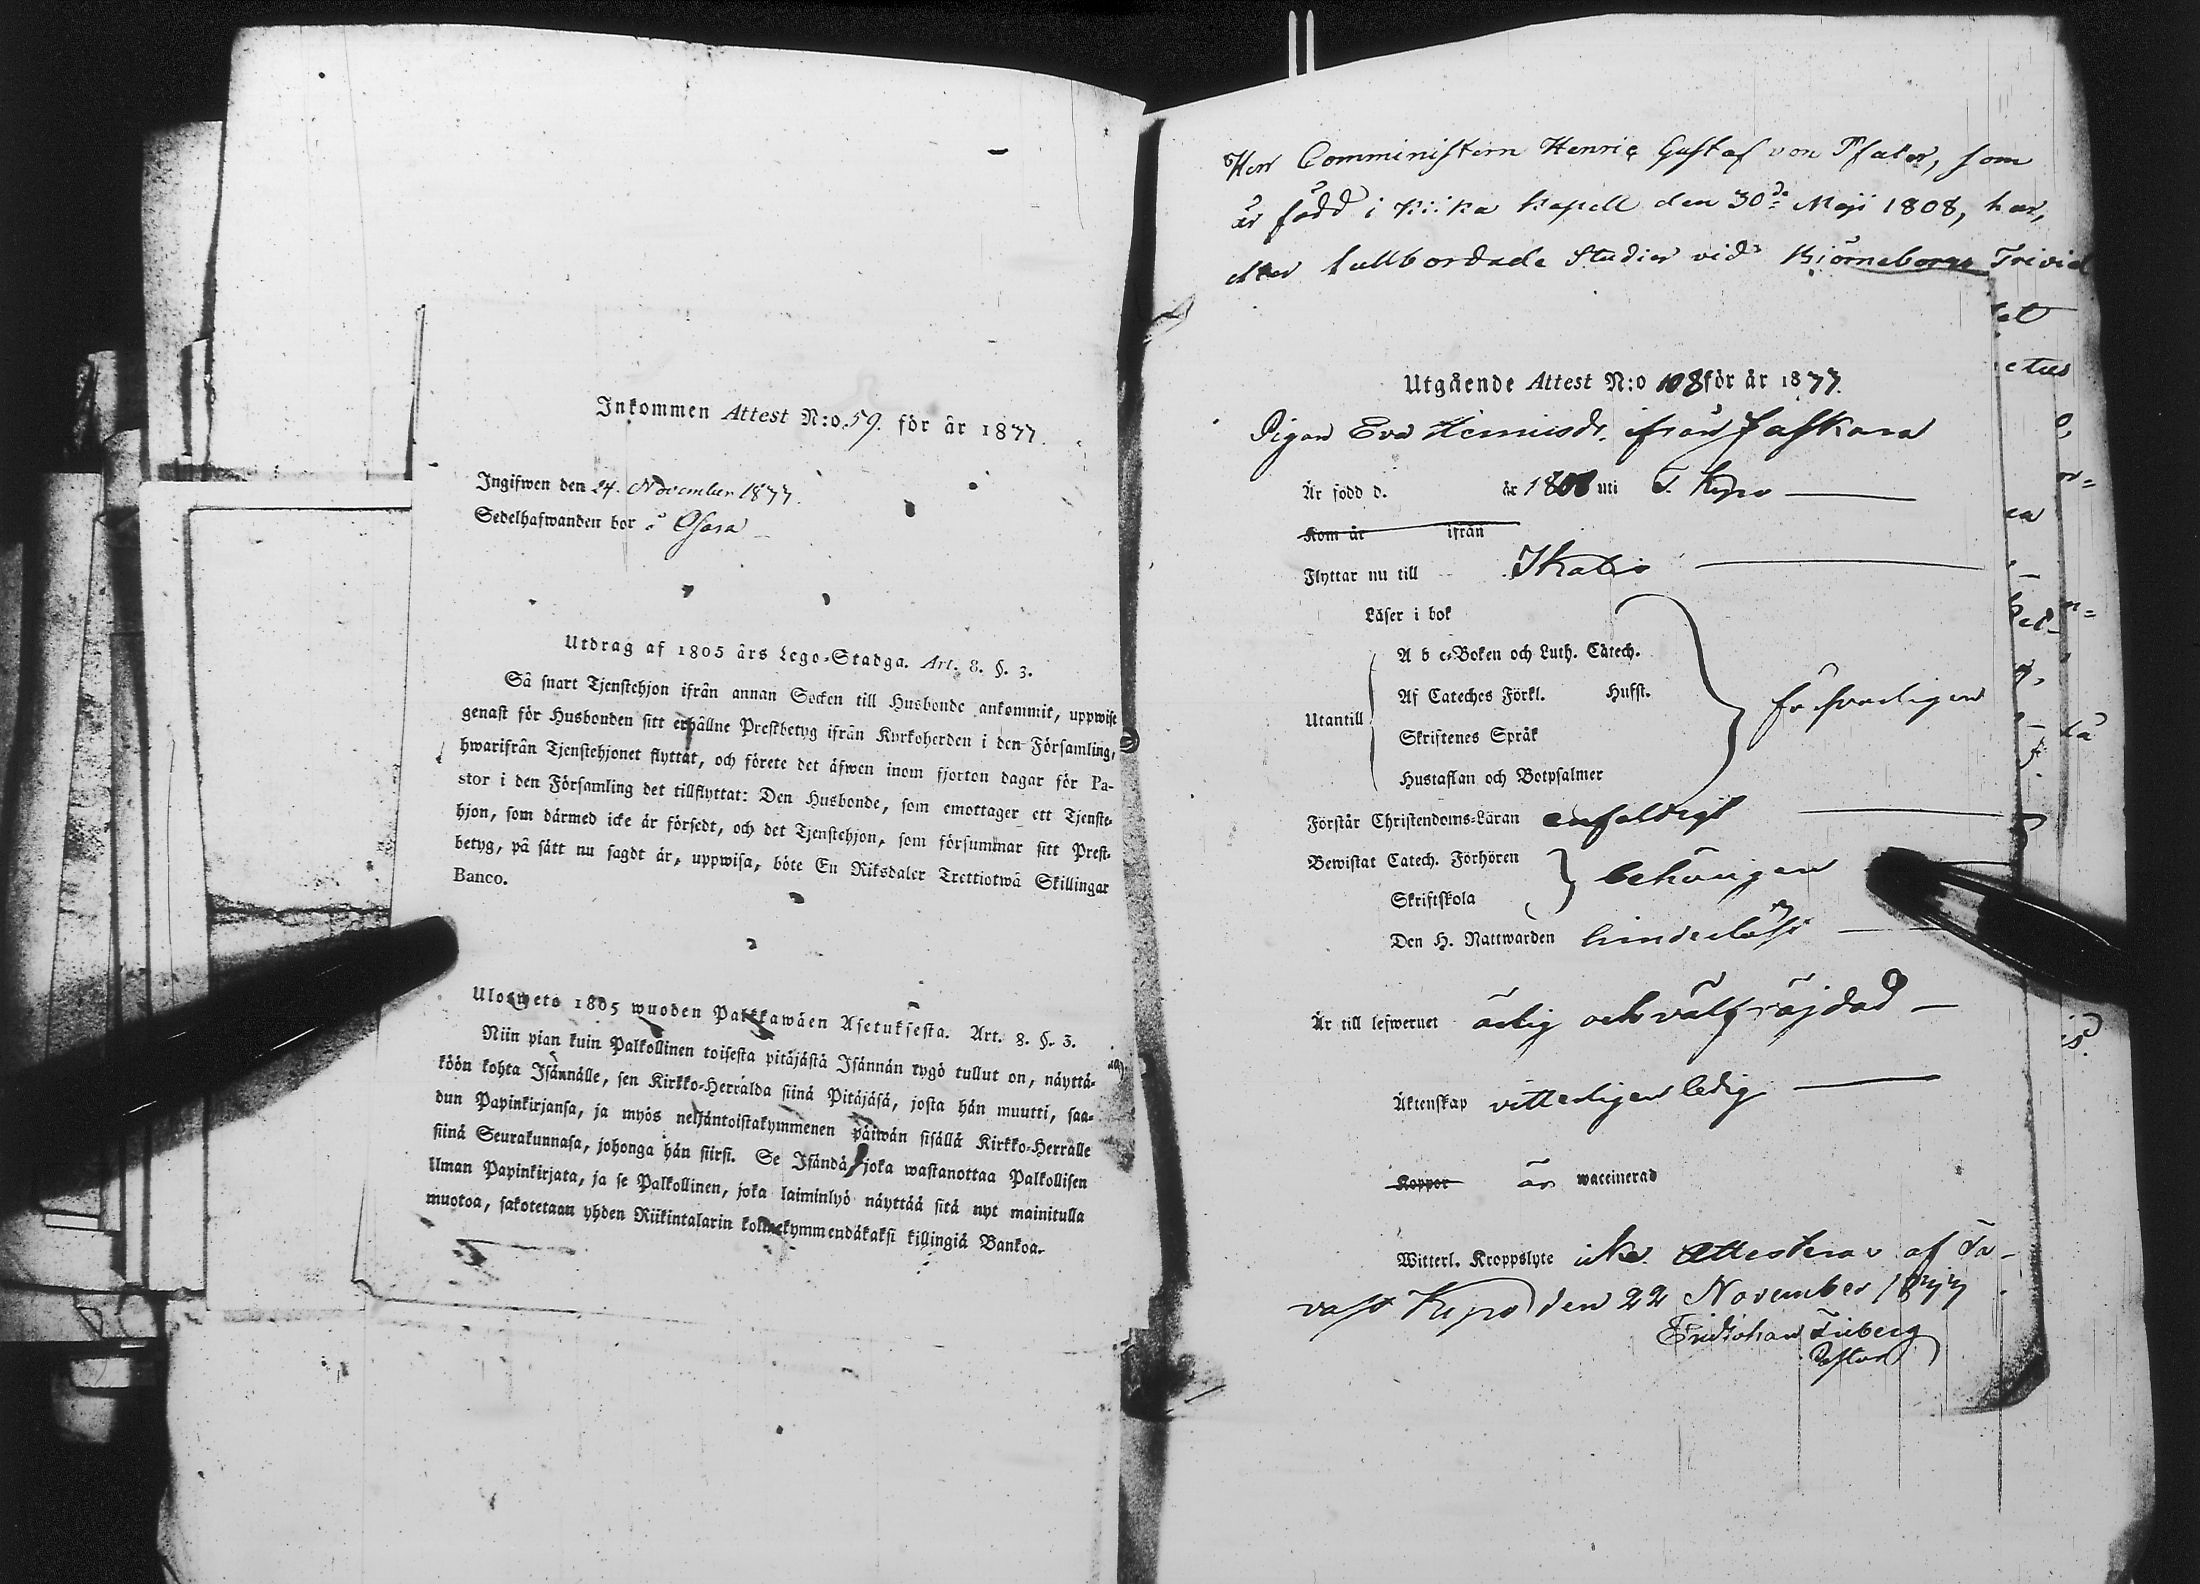 Inkommen Attest N:o 59. för år 1877.
Ingifwen den 24. November 1877.
Sedelhafwanden bor å Osara
Utdrag af 1805 års Lego-Stadga. Art. 8. §. 3.
Så snart Tjenstehjon ifrån annan Socken till Husbonde ankommit, uppwise
genast för Husbonden sitt erhållne Prestbetyg ifrån Kyrkoherden i den Församling,
hwarifrån Tjenstehjonet flyttat, och förete det äfwen inom fjorton dagar för Pa-
stor i den Församling det tillflyttat: Den Husbonde, som emottager ett Tjenste-
hjon, som därmed icke är försedt, och det Tjenstehjon, som försummar sitt Prest-
betyg, på sätt nu sagdt är, uppwisa, böte En Riksdaler Trettiotwå Skillingar
Banco.
Ulosweto 1805 wuoden Palkkawäen Asetuksesta. Art. 8. §. 3.
Niin pian kuin Palkollinen toisesta pitäjästä Isännän tygö tullut on, näyttä-
köön kohta Isännälle, sen Kirkko-Herralda siinä Pitäjäsä, josta hän muutti, saa-
dun Papinkirjansa, ja myös neljäntoistakymmenen päiwän sisällä Kirkko-Herralle
siinä Seurakunnasa, johonga hän siirsi. Se Isändä, joka wastanottaa Palkollisen
ilman Papinkirjata, ja se Palkollinen, joka laiminlyö näyttää sitä nyt mainitulla
muotoa, sakotetaan yhden Riikintalarin kolmekymmendäkaksi killingiä Bankoa.
Herr Comministern Henric Gustaf von Pfaler, som
är född i Kiika Kapell den 30de Maji 1808, har,
efter fullbordade Studier vid Björneborgs Trivial
Utgående Attest N:o 108 för år 1877.
Pigan Eva Henricsdr. ifrån Jaskara
Är född d. år 1808 uti T. Kyro
Kom år ifrån
Flyttar nu till Ikalis
Läser i bok
A b c-Boken och Luth. Catech.
Af Cateches Förkl. Husst.
Utantill försvarligen
Skriftenes Språk
Hustaflan och Botpsalmer
Förstår Christendoms-Läran enfaldigt
Bewistat Catech. Förhören
behörigen
Skriftskola
Den H. Nattwarden hinderlöst
Är till lefwernet ärlig och välfräjdad
Äktenskap vitterligen ledig
Koppor är waccinerad
Witterl. Kroppslyte icke. Attesteras af Ta-
vast Kyro den 22 November 1877
Pastor